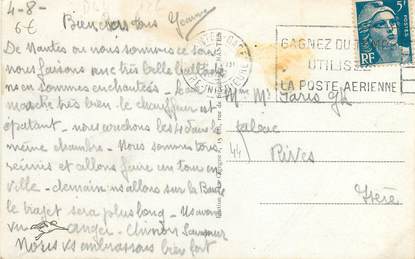 4-8-
6€
Bien chers tous Yonne
De Nantes où nous sommes ce soir
nous faisons une très belle ballade
ns en sommes enchantés - Le
marche très bien le chauffeur est
épatant - nous couchons les 4 dans la
même chambre - Nous sommes tous
réunis et allons faire un tour en
ville - demain ns allons sur La Baule
le trajet sera plus long - Ns avons
vu Angers - Chinon Saumur
Nous vs embrassons bien fort
GAGNEZ DU TEMPS
UTILISEZ
LA POSTE AERIENNE
5F
POSTES
RF
M Mme Paris
44
Rives
Isère